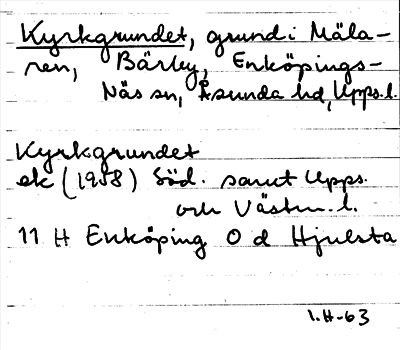 Kyrkgrundet, grund i Mäla-
ren, Bärby, Enköpings-
Näs sn, Åsunda hd, Upps.l.
Kyrkgrundet
ek (1958) Söd. samt Upps.
och Västm. l.
11 H Enköping O d Hjulsta
1.H-63